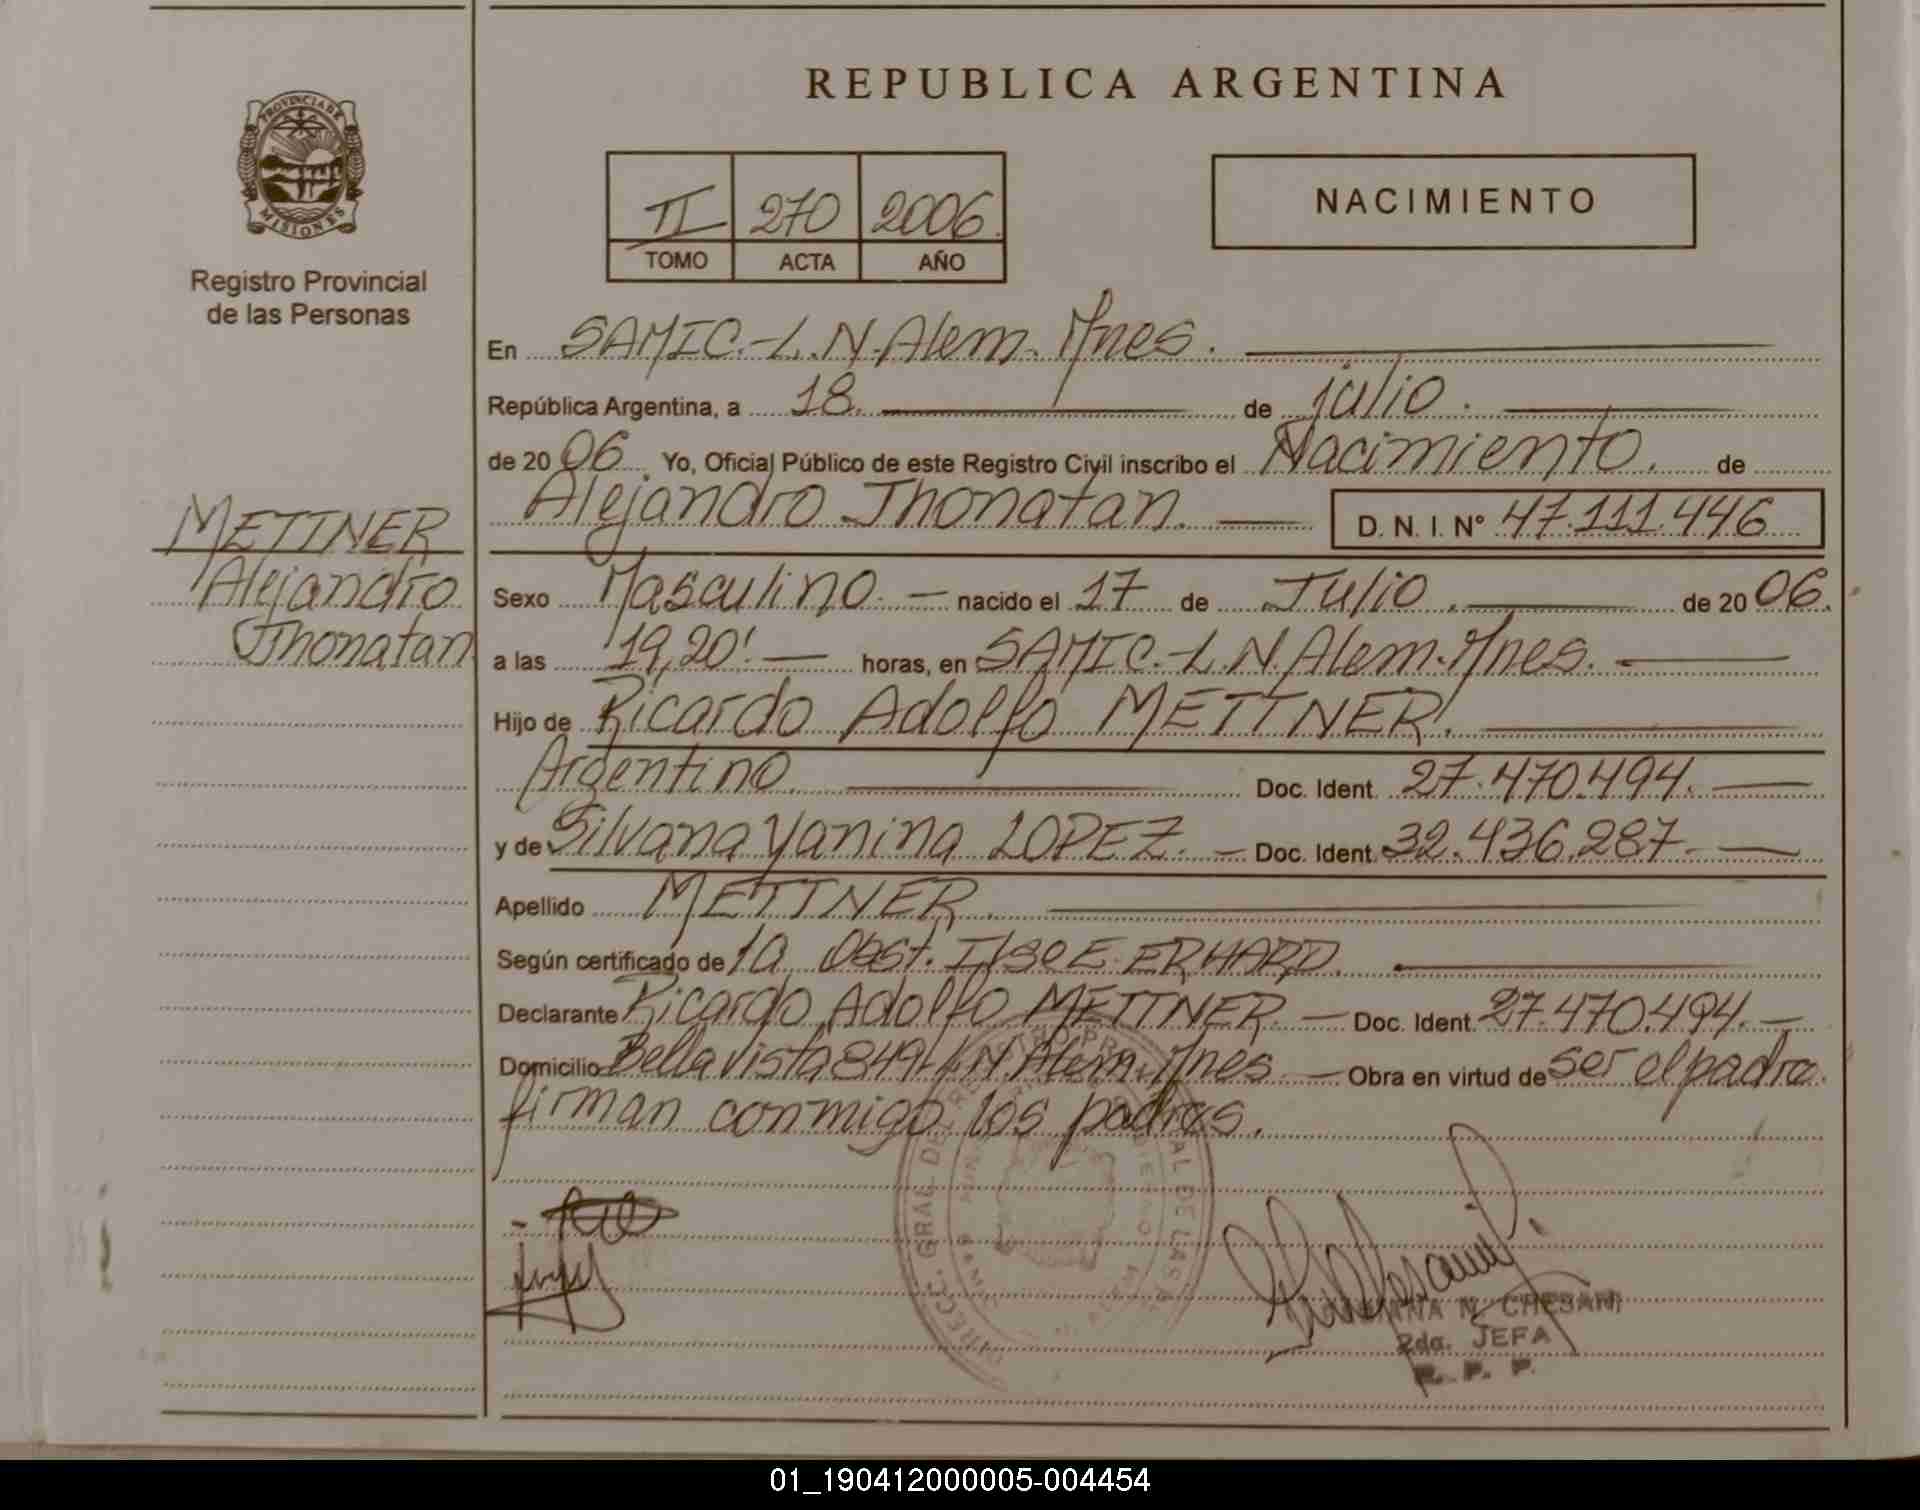 REPUBLICA ARGENTINA
PROVINCIA DE
MISIONES
Registro Provincial
de las Personas
II 270 2006.
TOMO ACTA AÑO
NACIMIENTO
En SAMIC.-L.N.Alem.Mnes.
República Argentina, a 18. de julio.
de 2006 Yo, Oficial Público de este Registro Civil inscribo el Nacimiento. de
Alejandro Jhonatan. D. N. I. N° 47.111.446
METTNER
Alejandro
Jhonatan
Sexo Masculino. nacido el 17 de Julio. de 2006.
a las 19,20'. horas, en SAMIC.-L.N.Alem.Mnes.
Hijo de Ricardo Adolfo METTNER.
Argentino. Doc. Ident. 27.470.494.
y de Silvana Yanina LOPEZ. Doc. Ident. 32.436.287.
Apellido METTNER.
Según certificado de la Obst. Ilse E. ERHARD.
Declarante Ricardo Adolfo METTNER. Doc. Ident. 27.470.494.
Domicilio Bella vista 849-L.N.Alem.Mnes Obra en virtud de ser el padre.
firman conmigo los padres.
DIRECC. GRAL DEL REGISTRO PROVINCIAL DE LAS
N. ALEM
N. CHESANI
2da. JEFA
R. P. P.
01_190412000005-004454